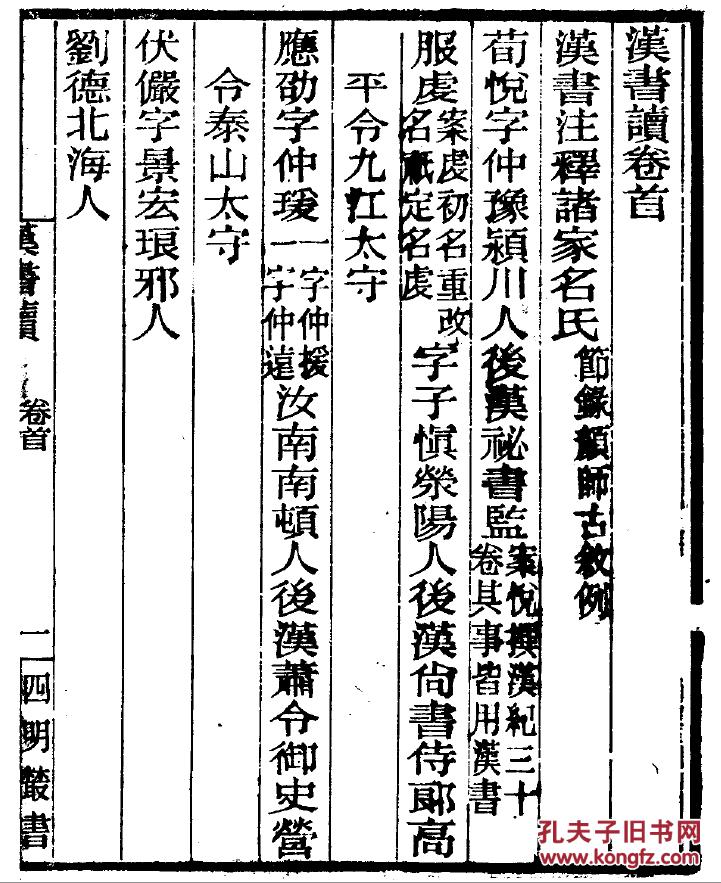 漢書讀卷首
漢書注釋諸家名氏節錄顏師古敘例
荀悅字仲豫潁川人後漢祕書監案悅撰漢紀三十卷其事皆用漢書
服虔案虔初名重改名祇定名虔字子愼滎陽人後漢尙書侍郞高
平令九江太守
應劭字仲瑗一字仲援一字仲遠汝南南頓人後漢蕭令御史營
令泰山太守
伏儼字景宏琅邪人
劉德北海人
漢書讀
卷首
一
四明叢書
孔夫子旧书网
www.kongfz.com